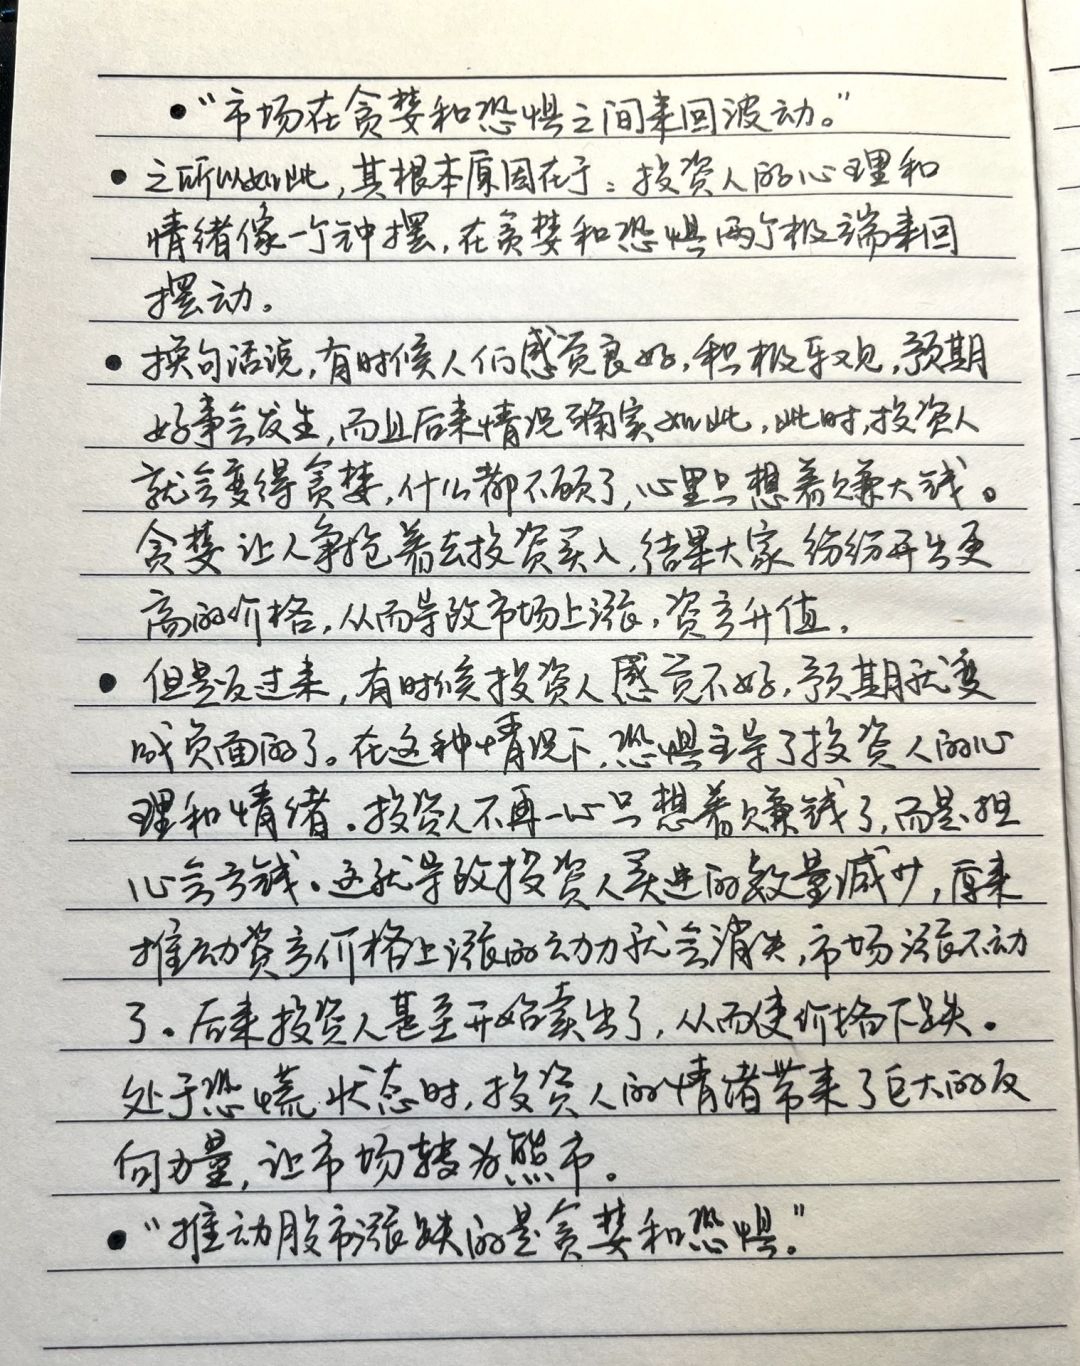 •“市场在贪婪和恐惧之间来回波动。”
• 之所以如此,其根本原因在于:投资人的心理和
情绪像一个钟摆,在贪婪和恐惧两个极端来回
摆动。
• 换句话说,有时候人们感觉良好,积极乐观,预期
好事会发生,而且后来情况确实如此,此时,投资人
就会变得贪婪,什么都不顾了,心里只想着赚大钱。
贪婪让人争抢着去投资买入,结果大家纷纷开出更
高的价格,从而导致市场上涨,资产升值,
• 但是反过来,有时候投资人感觉不好,预期就变
成负面的了。在这种情况下,恐惧主导了投资人的心
理和情绪。投资人不再一心只想着赚钱了,而是担
心会亏钱。这就导致投资人买进的数量减少,原来
推动资产价格上涨的动力就会消失,市场涨不动
了。后来投资人甚至开始卖出了,从而使价格下跌。
处于恐慌状态时,投资人的情绪带来了巨大的反
向力量,让市场转为熊市。
•“推动股市涨跌的是贪婪和恐惧。”